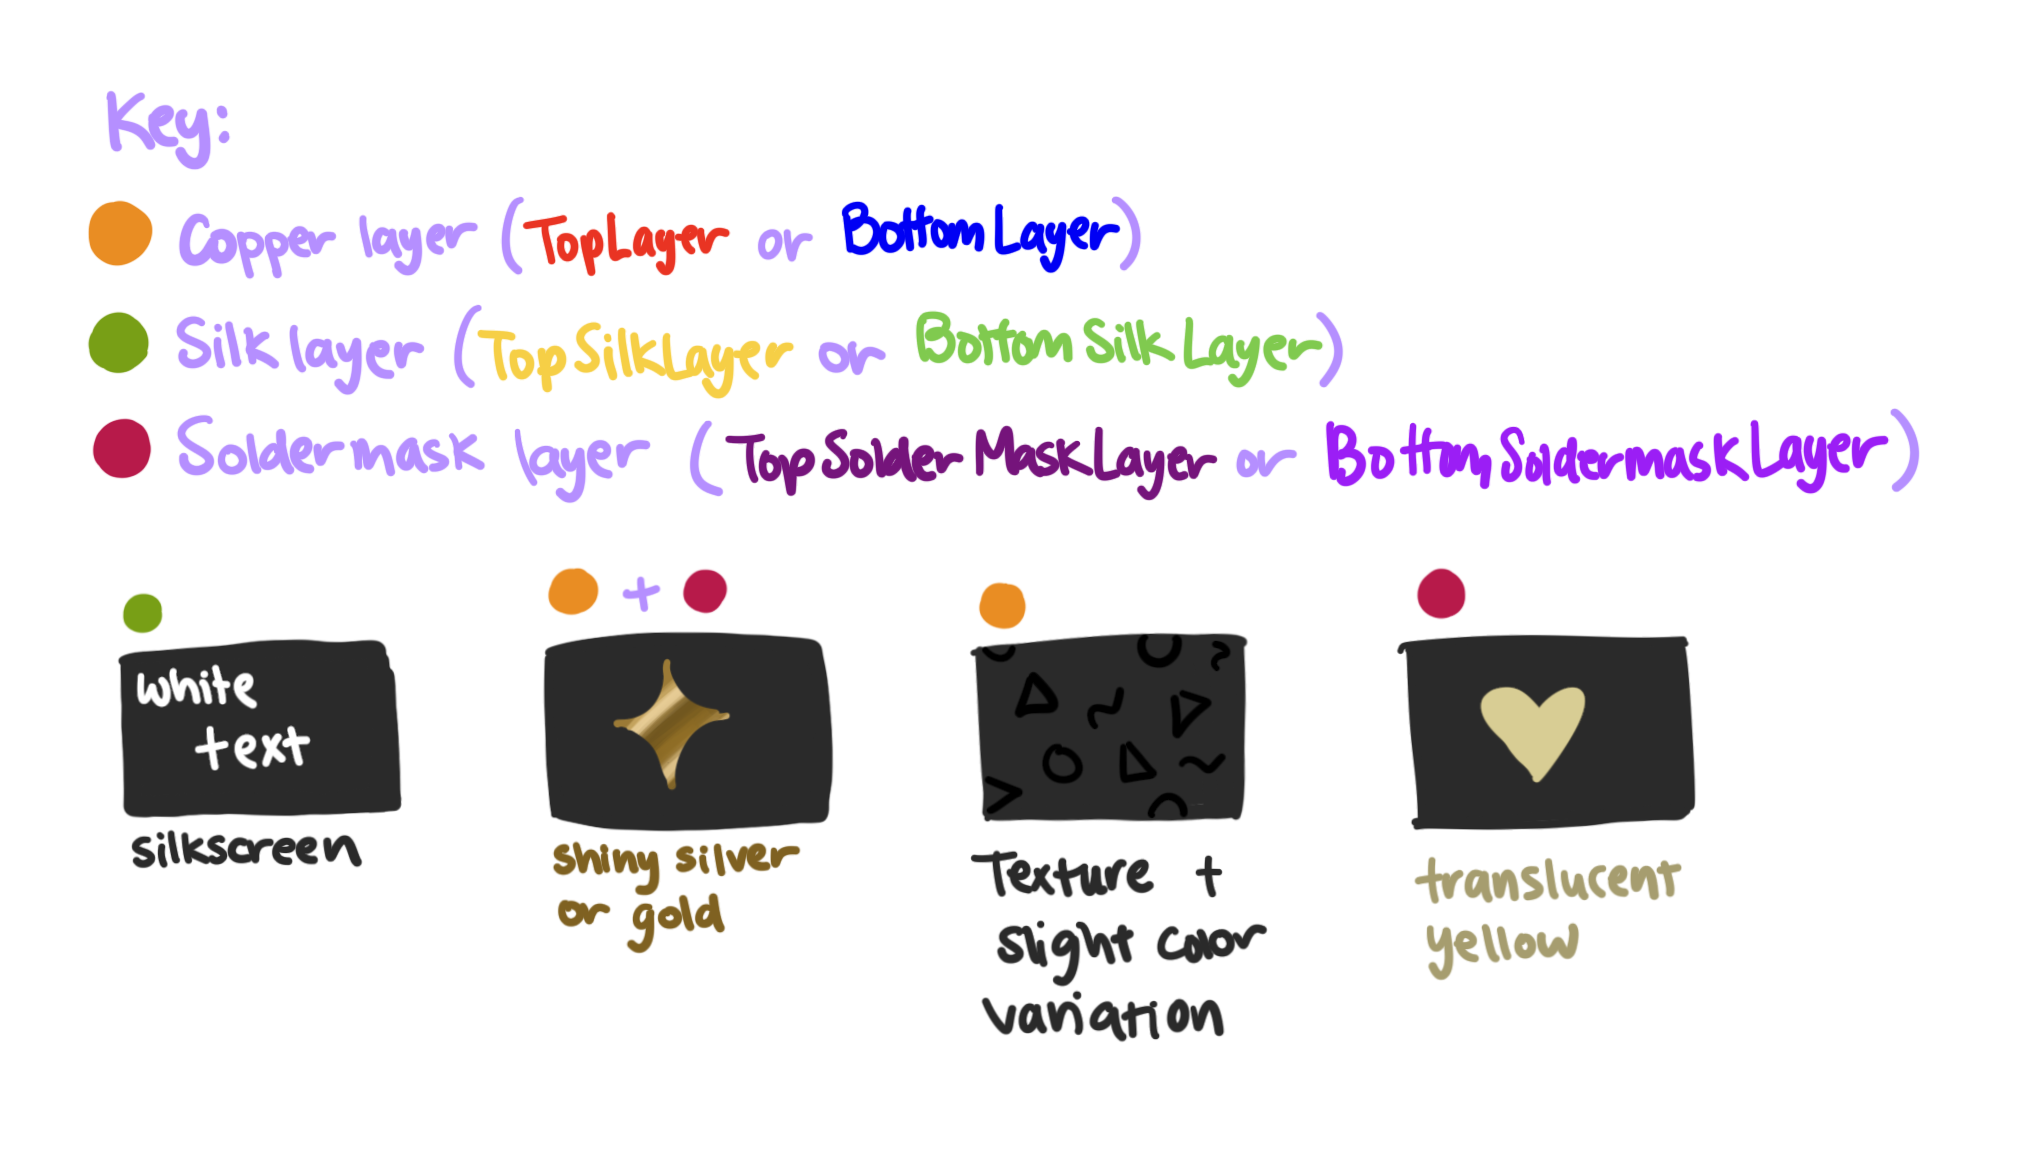 Key:
Copper layer (TopLayer or BottomLayer)
Silk layer (TopSilkLayer or BottomSilkLayer)
Soldermask layer (TopSolderMaskLayer or BottomSoldermaskLayer)
+
white
text
silkscreen
shiny silver
or gold
Texture +
slight color
variation
translucent
yellow